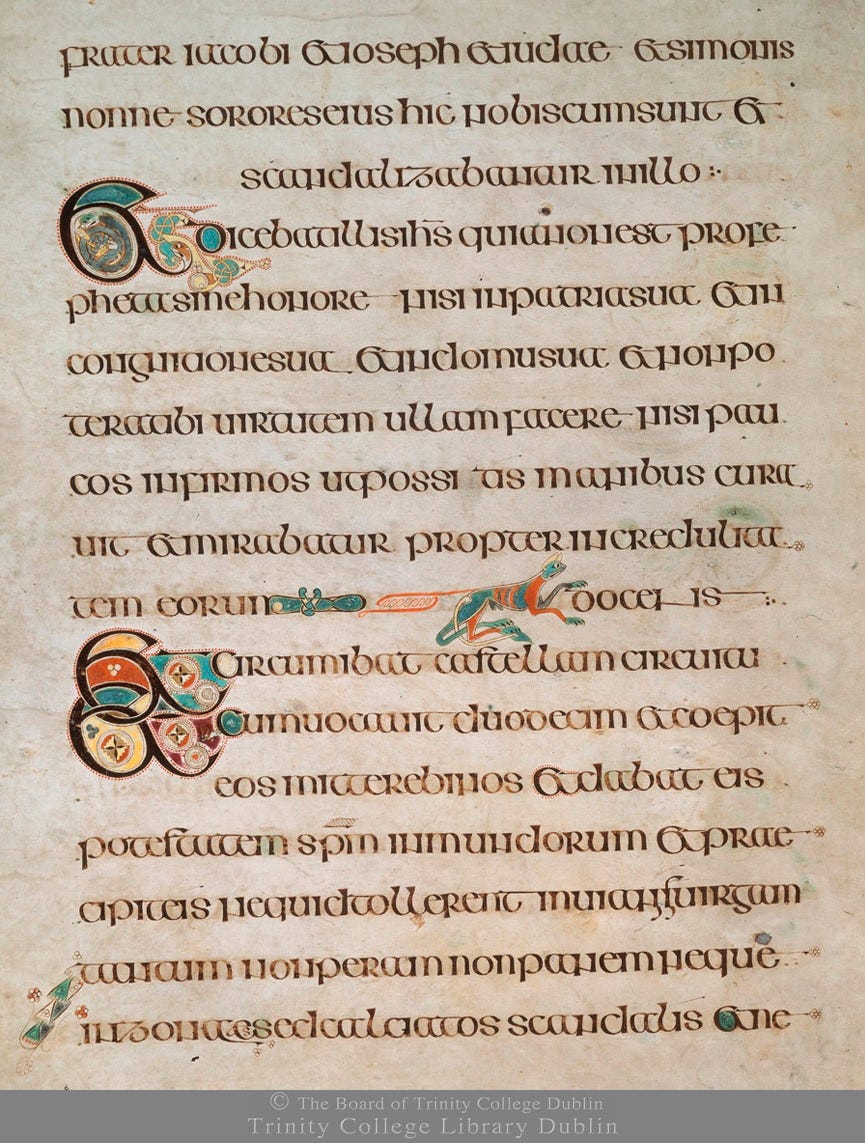 frater iacobi & ioseph & iudae & simonis
nonne sorores eius hic nobiscum sunt &
scandalizabantur in illo
& dicebat illis ihs quia non est profe
pheta sine honore nisi in patria sua & in
congnatione sua & in domu sua & non po
terat ibi uirtutem ullam facere nisi pau
cos infirmos inpossitis manibus cura
uit & mirabatur propter incredulita
tem eorum docens
& circumibat castella in circuitu
& conuocauit duodecim & coepit
eos mittere binos & dabat eis
potestatem spm inmundorum & prae
cipit eis ne quid tollerent in uia nisi uirgam
tantum non peram non panem neque
in zona aes sed calciatos scandalis & ne
© The Board of Trinity College Dublin
Trinity College Library Dublin